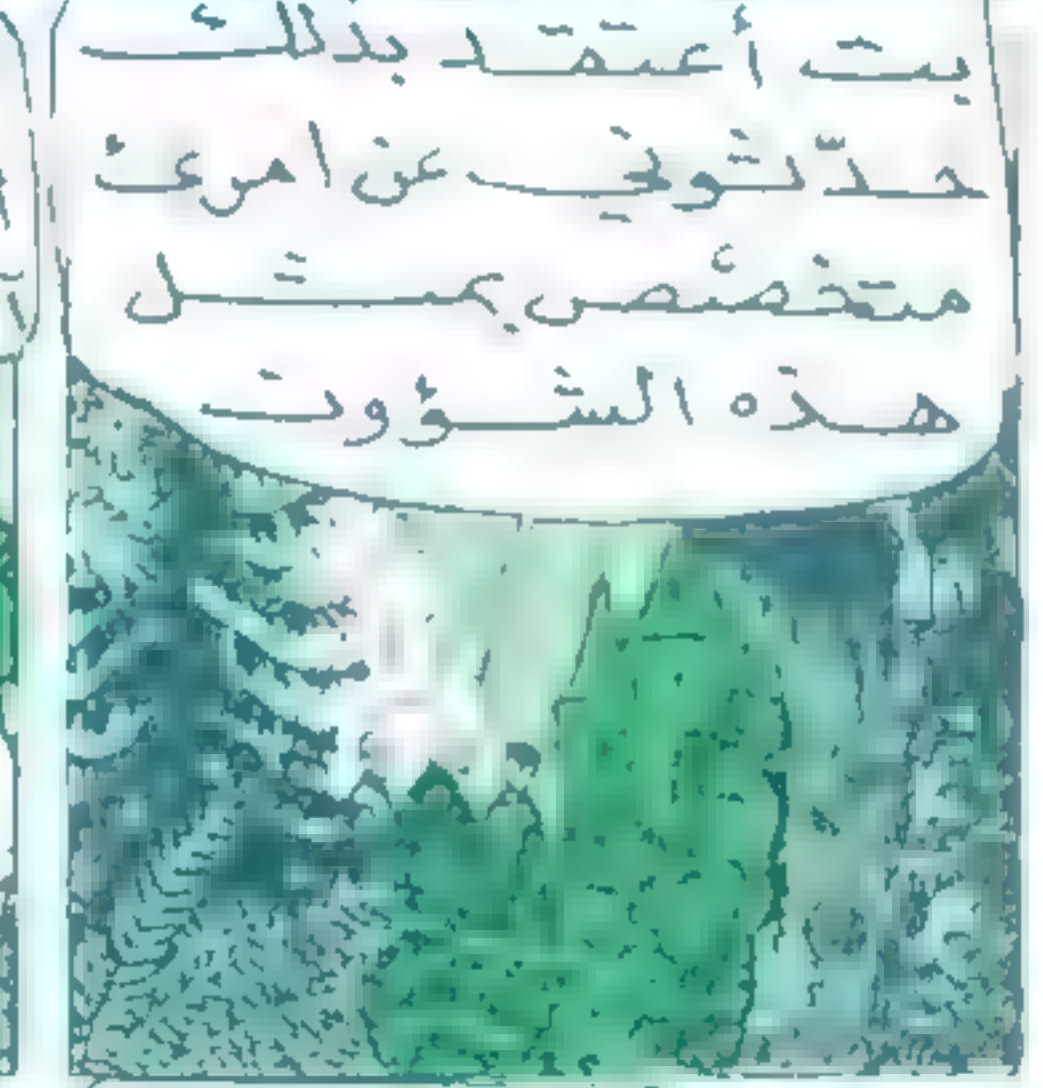 بت أعتقد بذلك
حدّثوني عن امرئ
متخصّص بمثل
هذه الشؤون